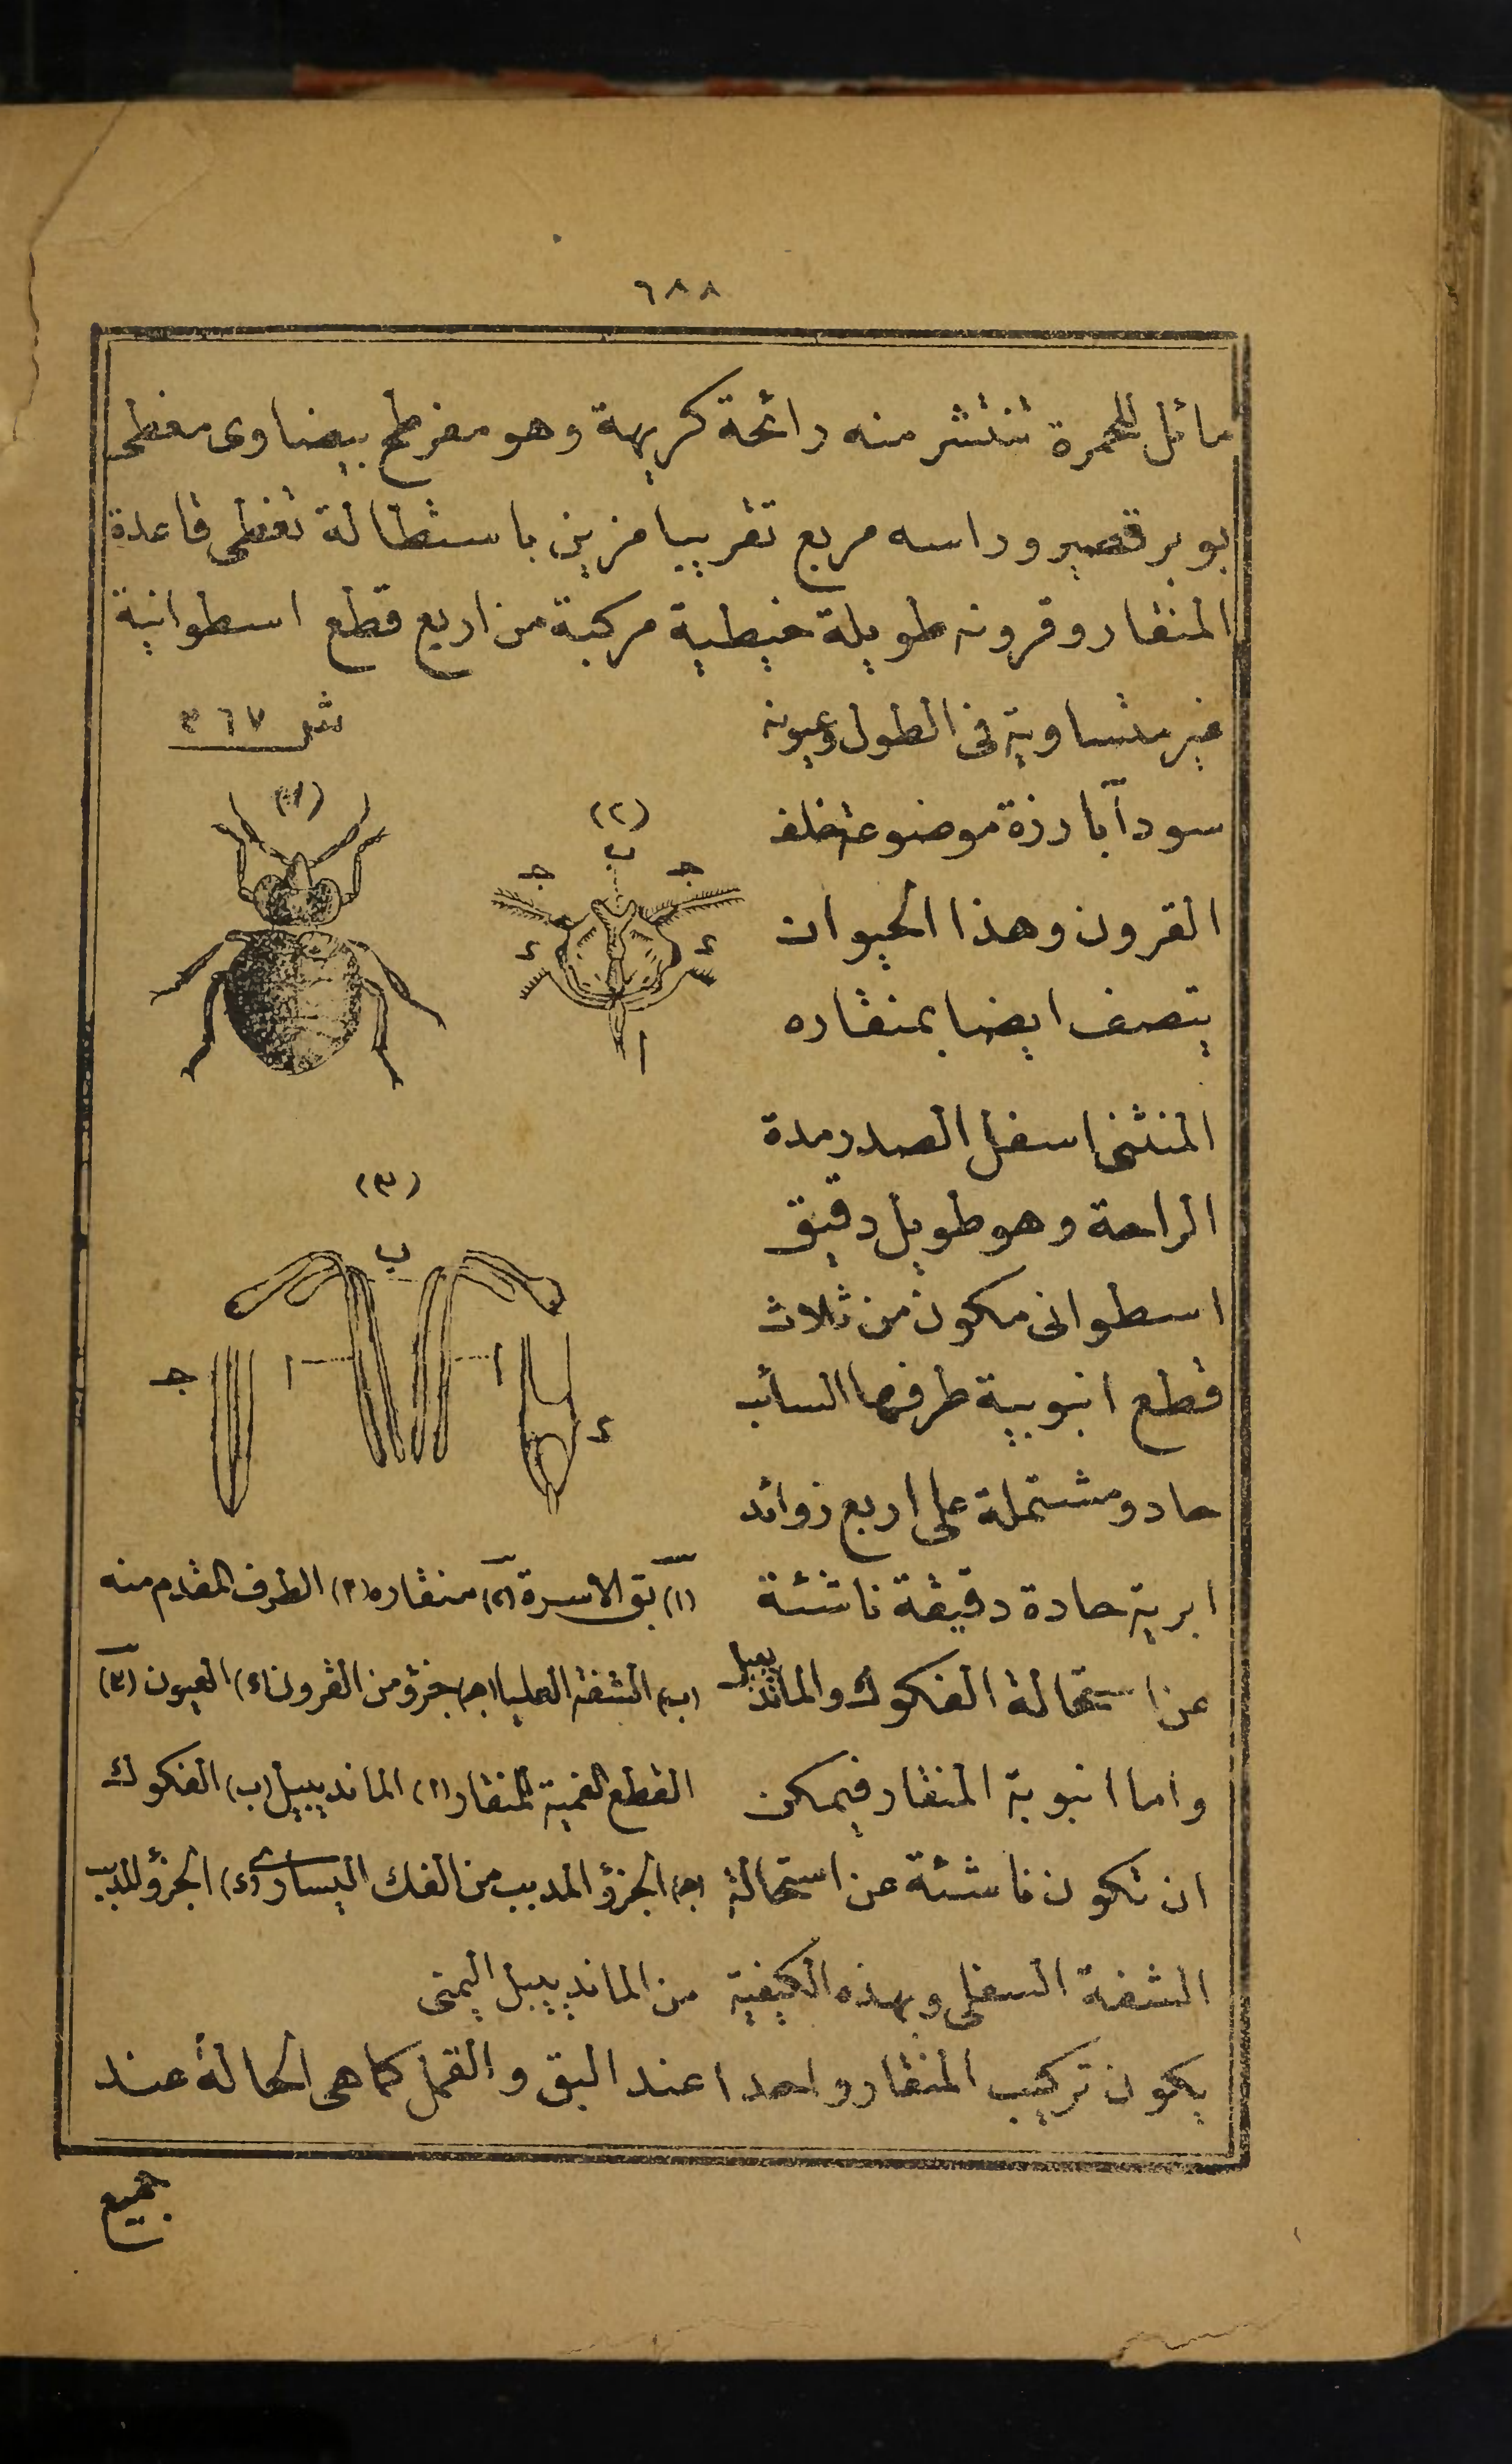 ٦٨٨
مائل للحمرة تنتشر منه رائحة كريهة وهو مفرطح بيضاوى مغطى
بوبر قصير وراسه مربع تقريبا مزين باستطالة تغطى قاعدة
المنقار وقرونه طويلة خيطية مركبة من اربع قطع اسطوانية
غير متساوية فى الطول وعيونه
سودآ بارزة موضوعة خلف
القرون وهذا الحيوان
يتصف ايضا بمنقاره
المنثنى اسفل الصدر مدة
الراحة وهو طويل دقيق
اسطوانى مكون من ثلاث
قطع انبوبية طرفها السائب
حاد ومشتملة على اربع زوائد
ابرية حادة دقيقة ناشئة
عن استحالة الفكوك والماندبيل
واما انبوبة المنقار فيمكن
ان تكون ناشئة عن استحالة
الشفة السفلى وبهذه الكيفية
شر ٣٦٧
(١)
(٢)
ب
ج ج
د د
ا
(٣)
ب
ا ا
ج
د
(١) بق الاسرة (٢) منقاره (ا) الطرف المقدم منه
(ب) الشفة العليا (ج) جزؤ من القرون (د) العيون (٣)
القطع الفمية للمنقار (ا) الماندبيبل (ب) الفكوك
(ج) الجزؤ المدبب من الفك اليسارى (د) الجزؤ المدبب
من الماندبيبل اليمنى
يكون تركيب المنقار واحدا عند البق والقمل كما هى الحالة عند
جميع